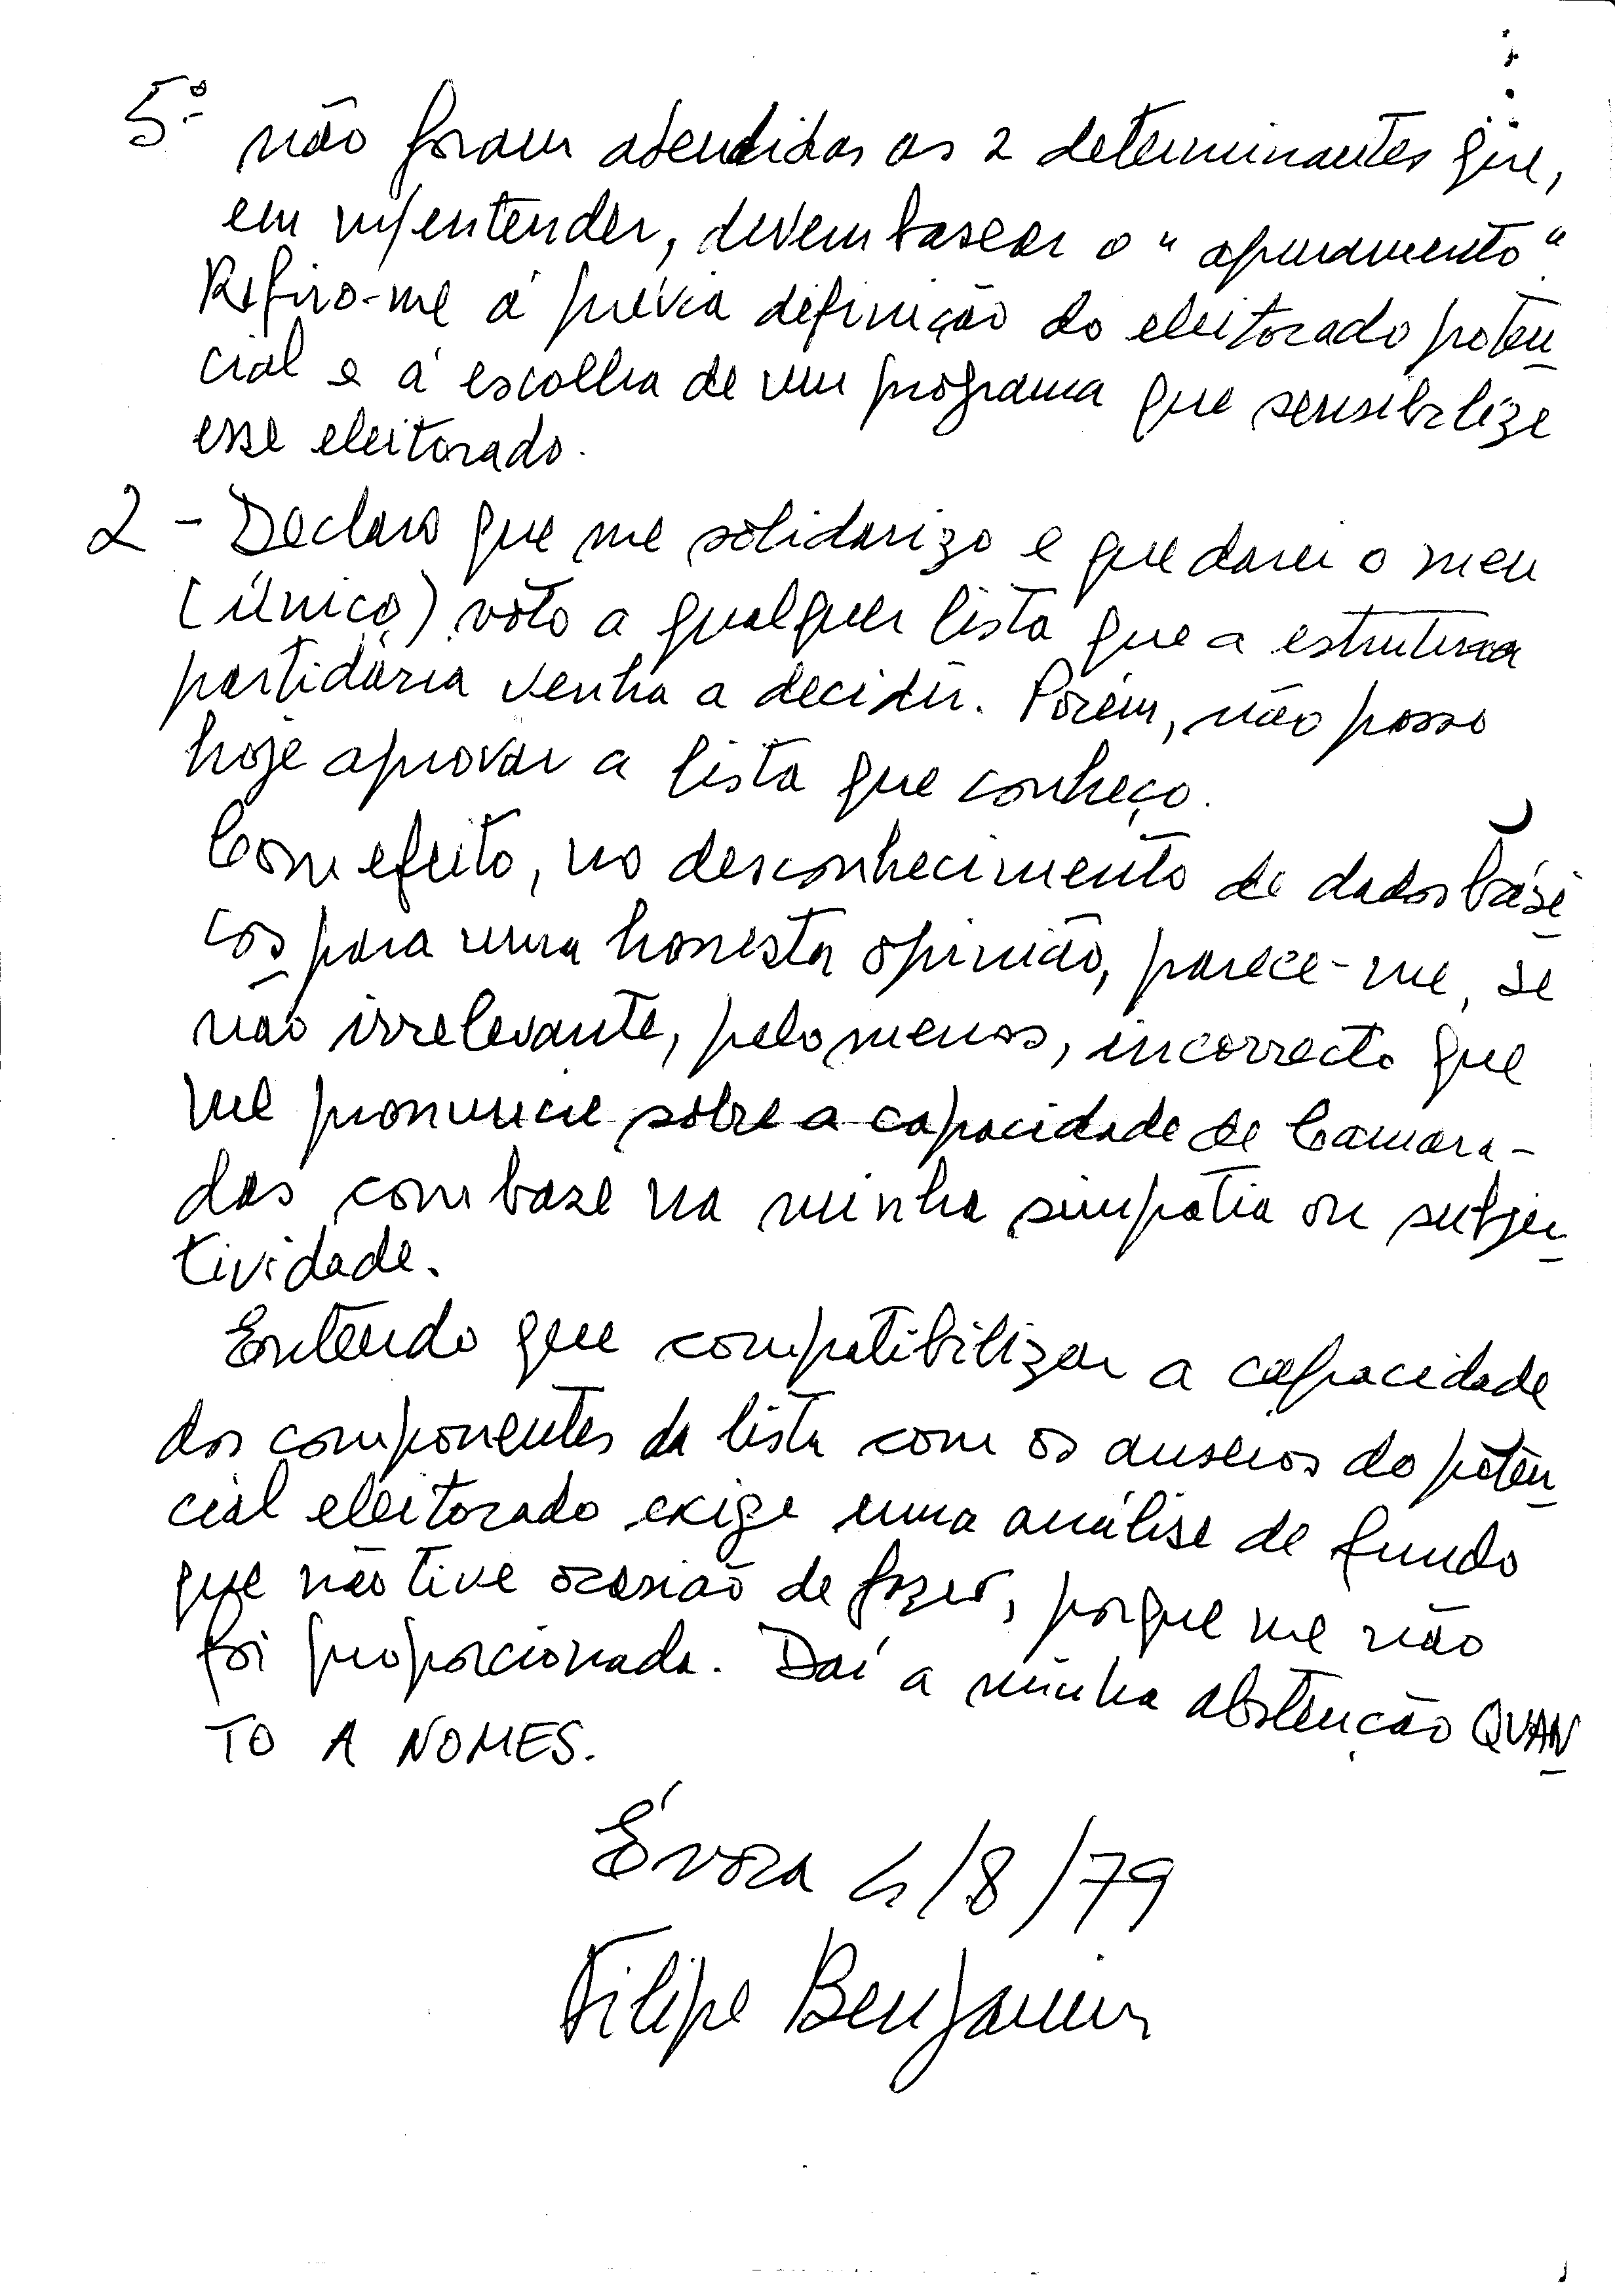 5º não foram atendidas as 2 determinantes que,
em m/entender, devem basear o "apuramento".
Refiro-me á prévia definição do eleitorado poten
cial e á escolha de um programa que sensibilize
esse eleitorado.
2 - Declaro que me solidarizo e que darei o meu
(único) voto a qualquer lista que a estrutura
partidária venha a decidir. Porém, não posso
hoje aprovar a lista que conheço.
Com efeito, no desconhecimento de dados bási
cos para uma honesta opinião, parece-me, se
não irrelevante, pelo menos, incorrecto que
me pronuncie sobre a capacidade de Camara-
das com base na minha simpatia ou subjec
tividade.
Entendo que compatibilizar a capacidade
dos componentes da lista com os anseios do poten
cial eleitorado exige uma análise de fundo
que não tive ocasião de fazer, porque me não
foi proporcionada. Daí a minha abstenção QUAN
TO A NOMES.
Évora 4/8/79
Filipe Benjamim